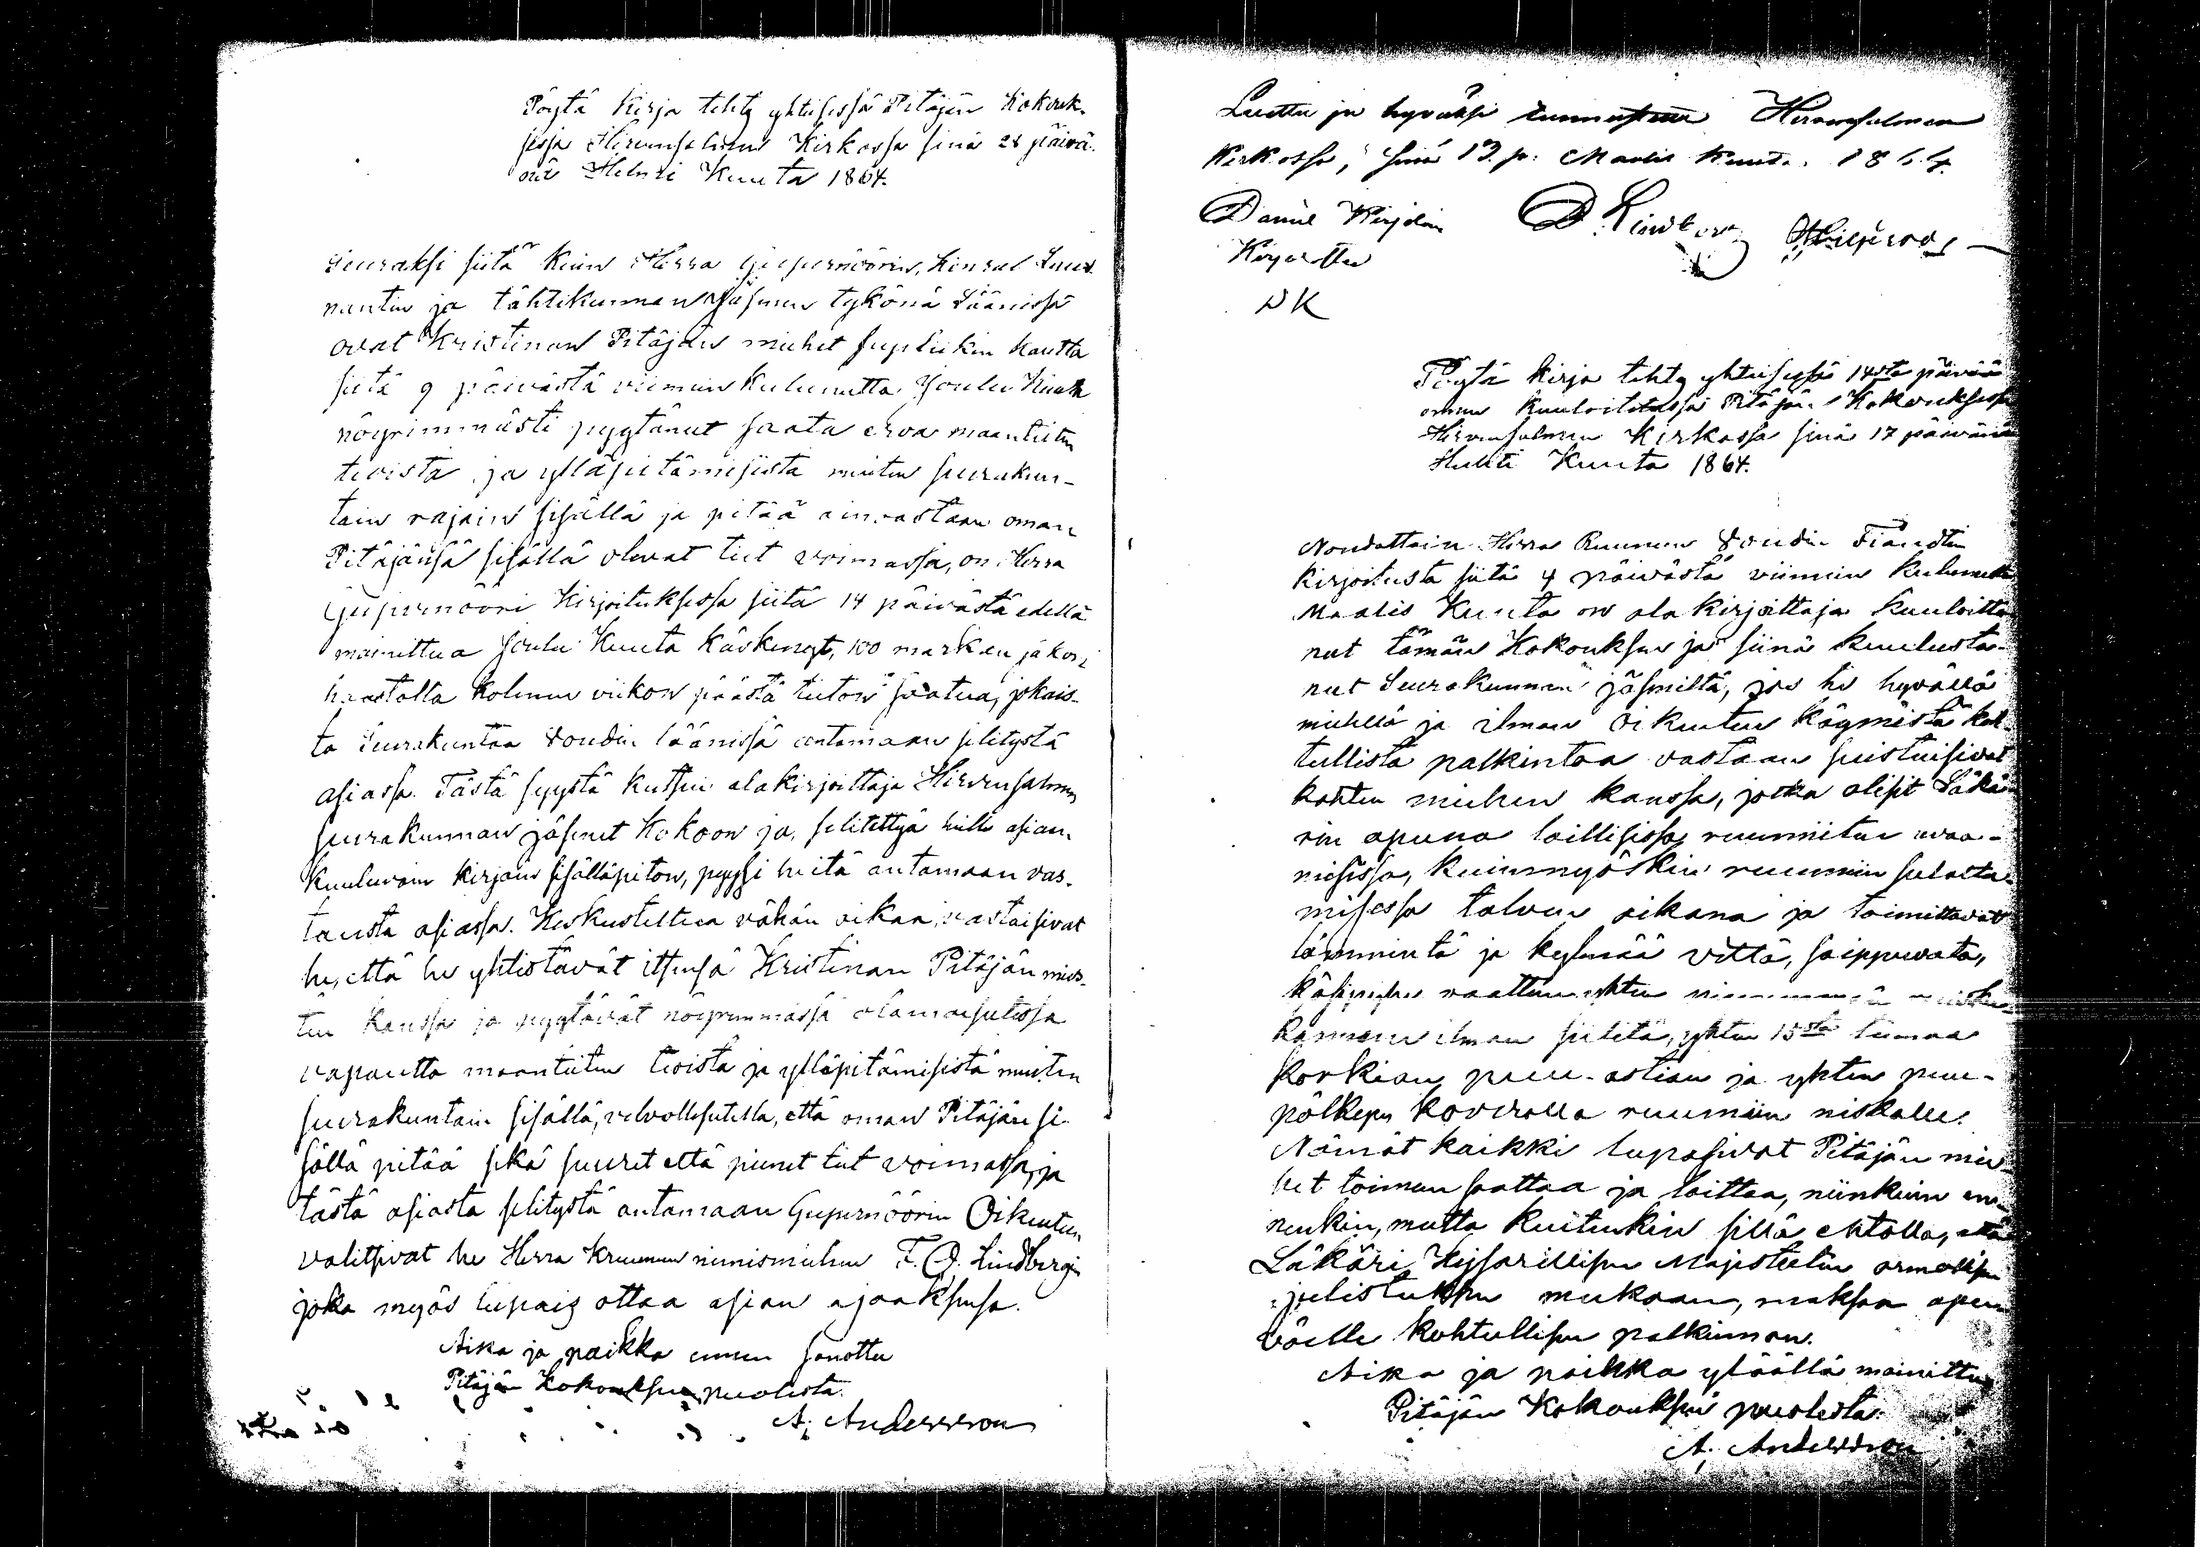 Pöytä Kirja tehty yhteisessä Pitäjän Kokouk-
sessa Hirvensalmen Kirkossa sinä 28 päivä-
nä Helmi Kuuta 1864.
Seuraksi siitä kuin Herra Gupernöörin, Kenral Luut-
nantin ja tähtikunnan Jäsenen tykönä Läänissä
ovat Kristinan Pitäjän miehet suplikin kautta
siitä 9 päivästä viimein kulunutta Joulu Kuuta
nöyrimmästi pyytänet saata eroa maantieten
teoista ja ylläpitämisistä muiden seurakun-
tain rajain sisällä ja pitää ainoastaan oman
Pitäjänsä sisällä olevat tiet voimassa, on Herra
Gupernööri Kirjoituksessa siitä 14 päivästä edellä
mainittua Joulu Kuuta käskenyt, 100 markan
haastolla kolmen viikon päästä tieton saatua, jokais-
ta Seurakuntaa Voudin läänissä antamaan selitystä
asiassa. Tästä syystä kutsui alakirjoittaja Hirvensalmen
seurakunnan jäsenet kokoon ja, selitettyä heille asian
kuuluvain kirjain sisälläpiton, pyysi heitä antamaan vas-
tausta asiassa. Keskusteltua vähän aikaa, vastaisivat
he, että he yhtistävät itsensä Kristinan Pitäjän mies-
ten kanssa ja pyytävät nöyrimmässä alamaisutessa
vapautta maantieten teoista ja ylläpitämisistä muiten
seurakuntain sisällä, velvollisutella, että oman Pitäjän si-
sällä pitää sekä suuret että pienet tiet voimassa, ja
tästä asiasta selitystä antamaan Gupernöörin Oikeuten
valitsivat he Herra Kruunun nimismiehen F. O. Lindbergin
joka myös lupais ottaa asian ajaaksensa.
Aika ja paikka ennen sanottu
Pitäjän Kokouksen puolesta.
A. Andersson
Luettu ja hyväksi tunnustettu Hirvensalmen
Kirkossa, sinä 13 p. Maalis Kuuta 1864.
Daniel Kirjolain D. Lindberg
Kirjoittu
DK
Pöytä kirja tehty yhteisessä 14sta päivää
ennen kuuloitetussa Pitäjän Kokouksessa
Hirvensalmen Kirkossa sinä 17 päivänä
Huhti Kuuta 1864.
Noudattain Herra Ruunun Voudin Fiandtin
kirjoitusta siitä 4 päivästä viimein kulunutta
Maalis Kuuta on alakirjoittaja kuuloitta-
nut tämän Kokouksen ja siinä kuulusta-
nut Seurakunnan jäsmiltä, jos he hyvällä
mielellä ja ilman oikeuten käymistä koh-
tullista palkintoa vastaan suistuisivat
kahten miehen kanssa, jotka olisit Läkä-
rin apuna laillisissa ruumiitten avaa-
misissa, kuinmyöskin ruumiin sulatta-
misessa talven aikana ja toimittavat
lämmintä ja kylmää vettä, saippuvata,
käsipyhe vaatteen, yhten
kannun ilman putetä, yhten 15sta tuumaa
korkian puu-astian ja yhten puu-
pölkyn koverolla ruumiin niskalle.
Nämät kaikki lupasivat Pitäjän mie-
het toimeen saattaa ja laittaa, niinkuin en-
nenkin, mutta kuitenkin sillä ehtolla, että
Läkäri Keisarillisen Majesteetin armollisen
julistuksen mukaan, maksaa apu-
väelle kohtullisen palkinnon.
Aika ja paikka ylöällä mainittu
Pitäjän Kokouksen puolesta.
A. Andersson